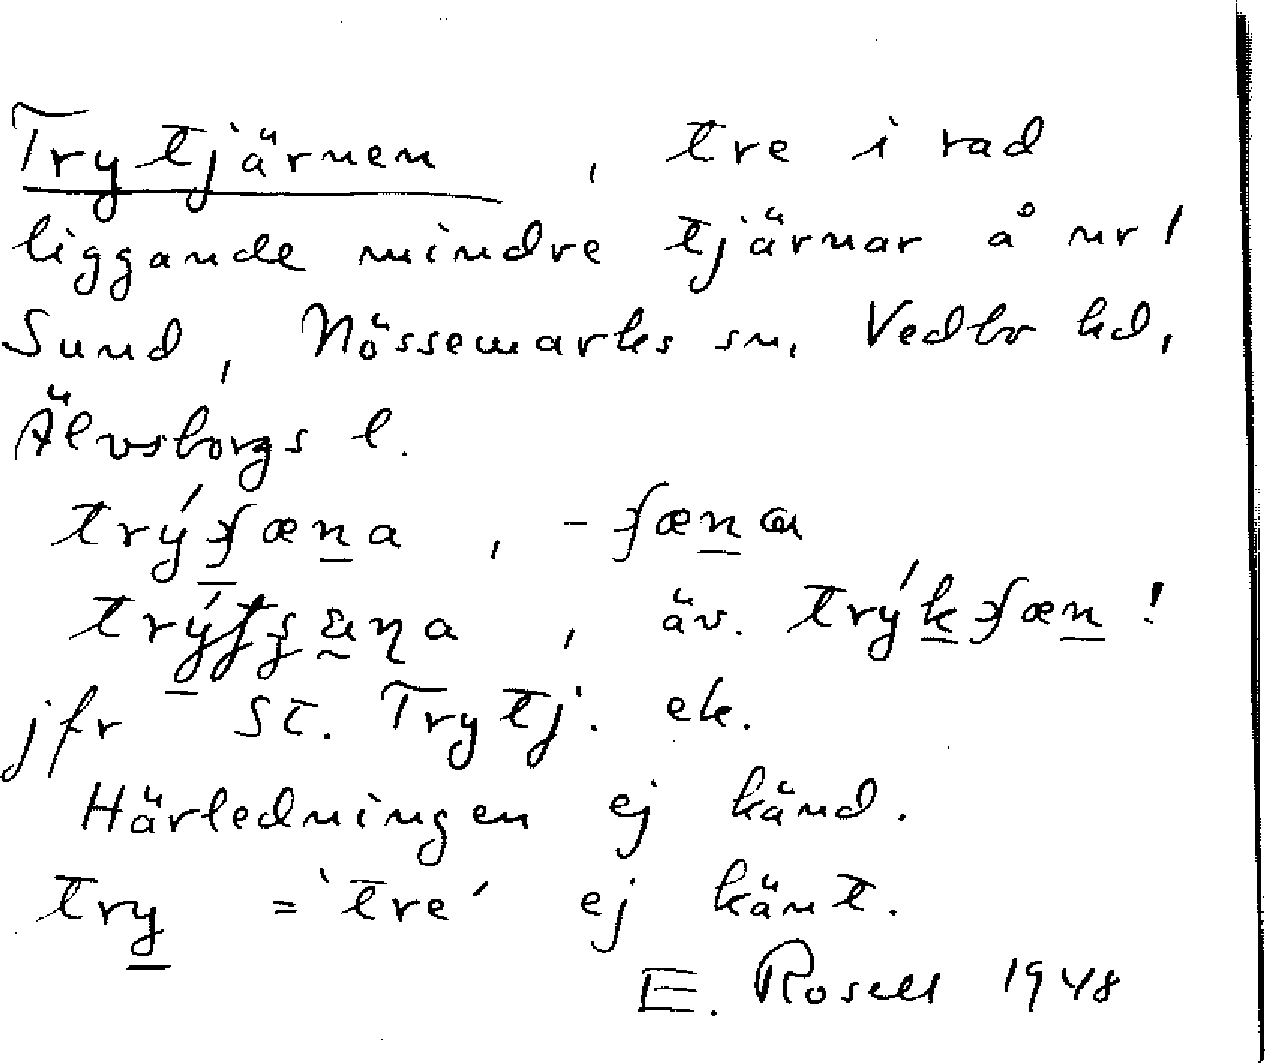 Trytjärnen, tre i rad
liggande mindre tjärnar å nr 1
Sund, Nössemarks sn, Vedbo hd,
Älvsborgs l.
äv.
jfr St. Trytj. ek.
Härledningen ej känd.
try = 'tre' ej känt.
E. Rosell 1948